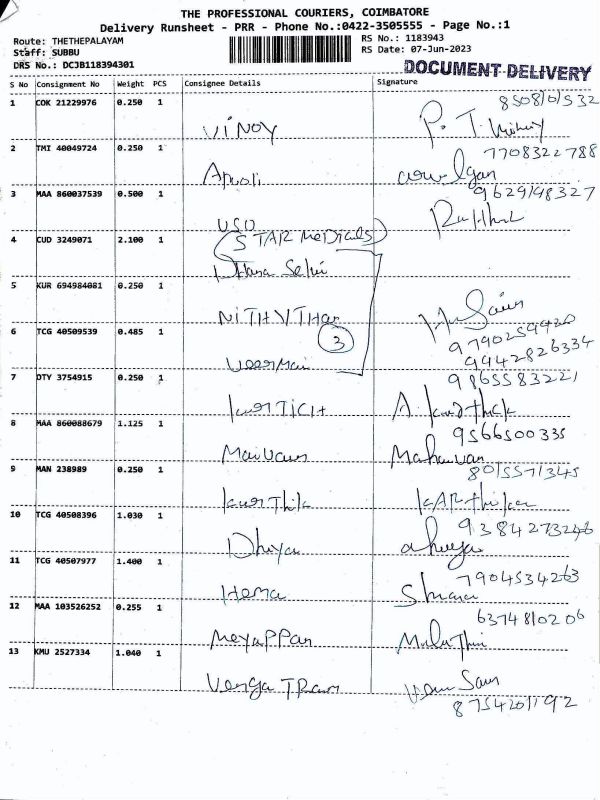 THE PROFESSIONAL COURIERS, COIMBATORE
Delivery Runsheet - PRR - Phone No.:0422-3505555 - Page No.:1
Route: THETHEPALAYAM
RS No.: 1183943
Staff: SUBBU
RS Date: 07-Jun-2023
DRS No.: DCJB118394301
DOCUMENT DELIVERY
S No Consignment No Weight PCS Consignee Details Signature
1 COK 21229976 0.250 1
VINOY
2 TMI 40049724 0.250 1 7708322788
3 MAA 860037539 0.500 1 9629148327
USO
(STAR MeDICals)
4 CUD 3249071 2.100 1
Dhana Selvi
5 KUR 694984081 0.250 1
NITHYTHan
9790259420
6 TCG 40509539 0.485 1 9942826334
3
7 DTY 3754915 0.250 1 9865583221
A. Karthick
8 MAA 860088679 1.125 1 9566500335
9 MAN 238989 0.250 1 8015571345
KarThik KARthikee
10 TCG 40508396 1.030 1 9384273246
Dhiya
11 TCG 40507977 1.400 1 7904534263
Hema
12 MAA 103526252 0.255 1 6374810206
MeyaPPan
13 KMU 2527334 1.040 1
VengaTRam
8754201192